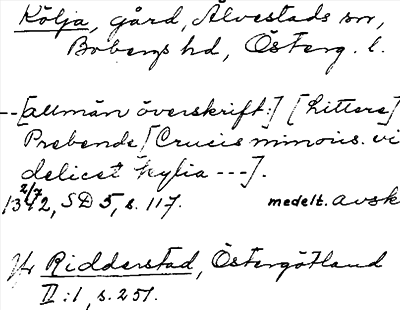 Kölja, gård, Älvestads sn,
Bobergs hd, Österg. l.
--[allmän överskrift:] [Littere]
Prebende [Crucis minoris. vi
delicet kylia ---].
13 2/7 42, SD 5, s. 117. medelt. avsk
Jfr Ridderstad, Östergötland
II:1, s. 251.